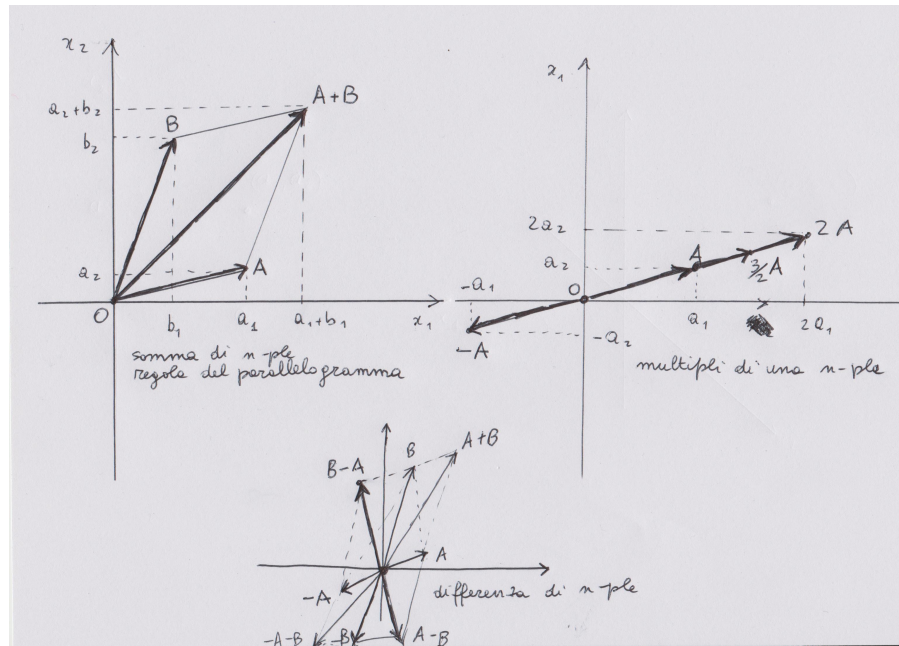 x₂
a₂+b₂
A+B
B
b₂
a₂
A
O
b₁
a₁
a₁+b₁
x₁
somma di n-ple
regola del parallelogramma
x₁
2a₂
2A
A
a₂
3/2 A
-a₁
O
-A
-a₂
a₁
2a₁
multipli di una n-ple
B-A
B
A+B
A
-A
differenza di n-ple
-A-B
-B
A-B